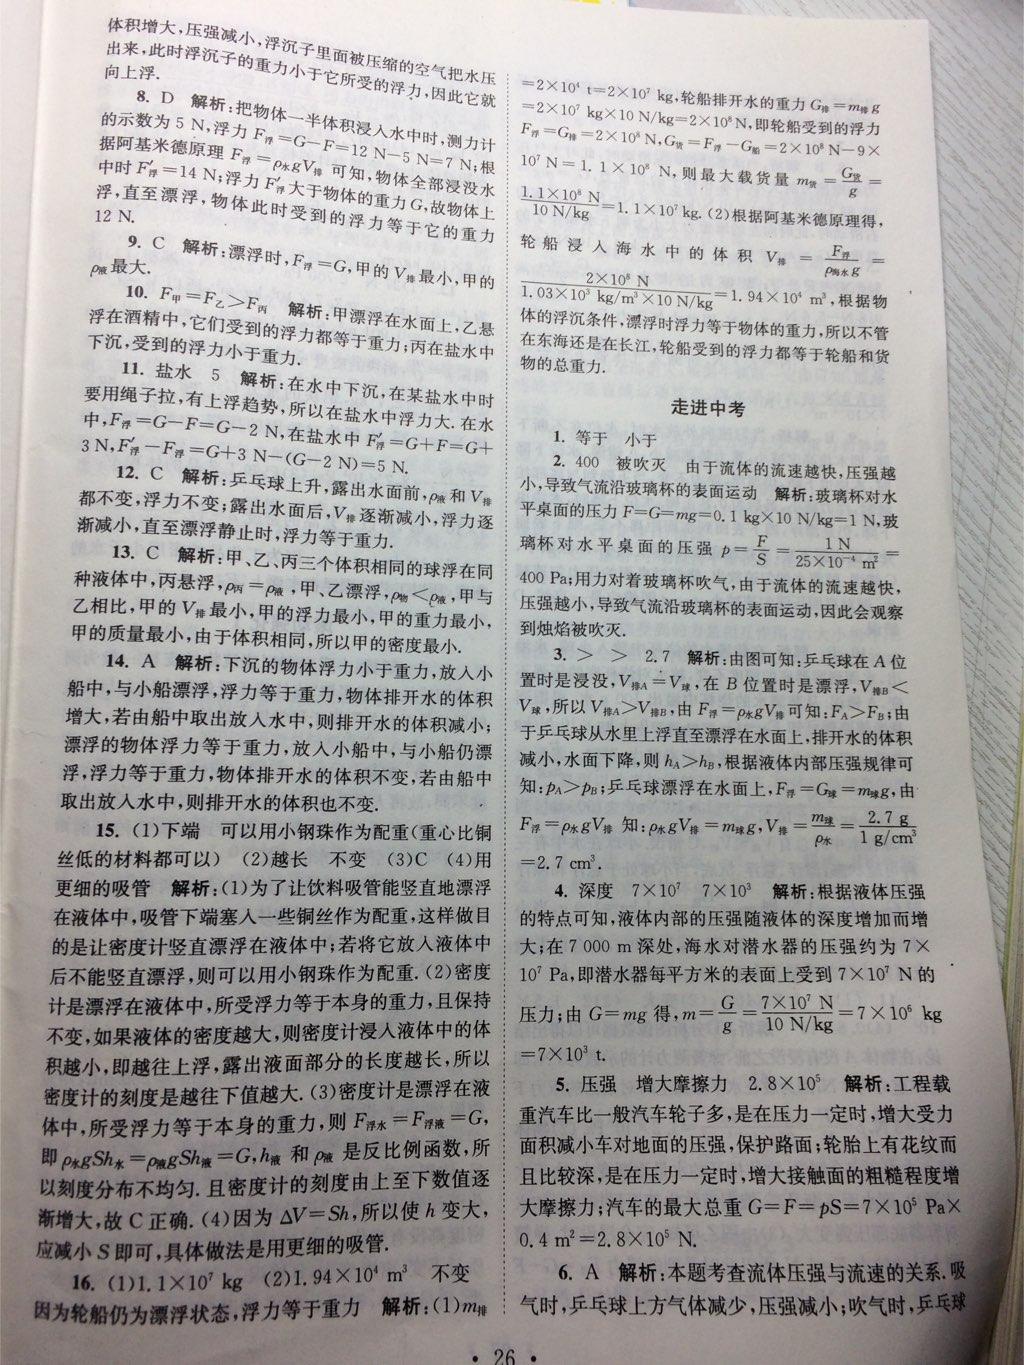 体积增大,压强减小,浮沉子里面被压缩的空气把水压
出来,此时浮沉子的重力小于它所受的浮力,因此它就
向上浮.
8. D 解析:把物体一半体积浸入水中时,测力计
的示数为 5 N,浮力 F浮=G-F=12 N-5 N=7 N;根
据阿基米德原理 F浮=ρ水gV排 可知,物体全部浸没水
中时 F′浮=14 N;浮力 F′浮大于物体的重力G,故物体上
浮,直至漂浮,物体此时受到的浮力等于它的重力
12 N.
9. C 解析:漂浮时,F浮=G,甲的 V排最小,甲的
ρ液最大.
10. F甲=F乙>F丙 解析:甲漂浮在水面上,乙悬
浮在酒精中,它们受到的浮力都等于重力;丙在盐水中
下沉,受到的浮力小于重力.
11. 盐水 5 解析:在水中下沉,在某盐水中时
要用绳子拉,有上浮趋势,所以在盐水中浮力大. 在水
中,F浮=G-F=G-2 N,在盐水中 F′浮=G+F=G+
3 N,F′浮-F浮=G+3 N-(G-2 N)=5 N.
12. C 解析:乒乓球上升,露出水面前,ρ液和 V排
都不变,浮力不变;露出水面后,V排逐渐减小,浮力逐
渐减小,直至漂浮静止时,浮力等于重力.
13. C 解析:甲、乙、丙三个体积相同的球浮在同
种液体中,丙悬浮,ρ丙=ρ液,甲、乙漂浮,ρ物<ρ液,甲与
乙相比,甲的 V排最小,甲的浮力最小,甲的重力最小,
甲的质量最小,由于体积相同,所以甲的密度最小.
14. A 解析:下沉的物体浮力小于重力,放入小
船中,与小船漂浮,浮力等于重力,物体排开水的体积
增大,若由船中取出放入水中,则排开水的体积减小;
漂浮的物体浮力等于重力,放入小船中,与小船仍漂
浮,浮力等于重力,物体排开水的体积不变,若由船中
取出放入水中,则排开水的体积也不变.
15. (1)下端 可以用小钢珠作为配重(重心比铜
丝低的材料都可以) (2)越长 不变 (3)C (4)用
更细的吸管 解析:(1)为了让饮料吸管能竖直地漂浮
在液体中,吸管下端塞入一些铜丝作为配重,这样做目
的是让密度计竖直漂浮在液体中;若将它放入液体中
后不能竖直漂浮,则可以用小钢珠作为配重. (2)密度
计是漂浮在液体中,所受浮力等于本身的重力,且保持
不变,如果液体的密度越大,则密度计浸入液体中的体
积越小,即越往上浮,露出液面部分的长度越长,所以
密度计的刻度是越往下值越大. (3)密度计是漂浮在液
体中,所受浮力等于本身的重力,则 F浮水=F浮液=G,
即 ρ水gSh水=ρ液gSh液=G,h液 和 ρ液 是反比例函数,所
以刻度分布不均匀. 且密度计的刻度由上至下数值逐
渐增大,故 C 正确. (4)因为 ΔV=Sh,所以使 h 变大,
应减小 S 即可,具体做法是用更细的吸管.
16. (1)1.1×10⁷ kg (2)1.94×10⁴ m³ 不变
因为轮船仍为漂浮状态,浮力等于重力 解析:(1)m排
=2×10⁴ t=2×10⁷ kg,轮船排开水的重力 G排=m排g
=2×10⁷ kg×10 N/kg=2×10⁸ N,即轮船受到的浮力
F浮=G排=2×10⁸ N,G货=F浮-G船=2×10⁸ N-9×
10⁷ N=1.1×10⁸ N,则最大载货量 m货=G货/g=
1.1×10⁸ N/10 N/kg=1.1×10⁷ kg. (2)根据阿基米德原理得,
轮船浸入海水中的体积 V排=F浮/ρ海水g=
2×10⁸ N/1.03×10³ kg/m³×10 N/kg=1.94×10⁴ m³,根据物
体的浮沉条件,漂浮时浮力等于物体的重力,所以不管
在东海还是在长江,轮船受到的浮力都等于轮船和货
物的总重力.
走进中考
1. 等于 小于
2. 400 被吹灭 由于流体的流速越快,压强越
小,导致气流沿玻璃杯的表面运动 解析:玻璃杯对水
平桌面的压力 F=G=mg=0.1 kg×10 N/kg=1 N,玻
璃杯对水平桌面的压强 p=F/S=1 N/25×10⁻⁴ m²=
400 Pa;用力对着玻璃杯吹气,由于流体的流速越快,
压强越小,导致气流沿玻璃杯的表面运动,因此会观察
到烛焰被吹灭.
3. > > 2.7 解析:由图可知:乒乓球在 A 位
置时是浸没,V排A=V球,在 B 位置时是漂浮,V排B<
V球,所以 V排A>V排B,由 F浮=ρ水gV排可知:FA>FB;由
于乒乓球从水里上浮直至漂浮在水面上,排开水的体积
减小,水面下降,则 hA>hB,根据液体内部压强规律可
知:pA>pB;乒乓球漂浮在水面上,F浮=G球=m球g,由
F浮=ρ水gV排 知:ρ水gV排=m球g,V排=m球/ρ水=2.7 g/1 g/cm³
=2.7 cm³.
4. 深度 7×10⁷ 7×10³ 解析:根据液体压强
的特点可知,液体内部的压强随液体的深度增加而增
大;在 7 000 m 深处,海水对潜水器的压强约为 7×
10⁷ Pa,即潜水器每平方米的表面上受到 7×10⁷ N 的
压力;由 G=mg 得,m=G/g=7×10⁷ N/10 N/kg=7×10⁶ kg
=7×10³ t.
5. 压强 增大摩擦力 2.8×10⁵ 解析:工程载
重汽车比一般汽车轮子多,是在压力一定时,增大受力
面积减小车对地面的压强,保护路面;轮胎上有花纹而
且比较深,是在压力一定时,增大接触面的粗糙程度增
大摩擦力;汽车的最大总重 G=F=pS=7×10⁵ Pa×
0.4 m²=2.8×10⁵ N.
6. A 解析:本题考查流体压强与流速的关系. 吸
气时,乒乓球上方气体减少,压强减小;吹气时,乒乓球
• 26 •